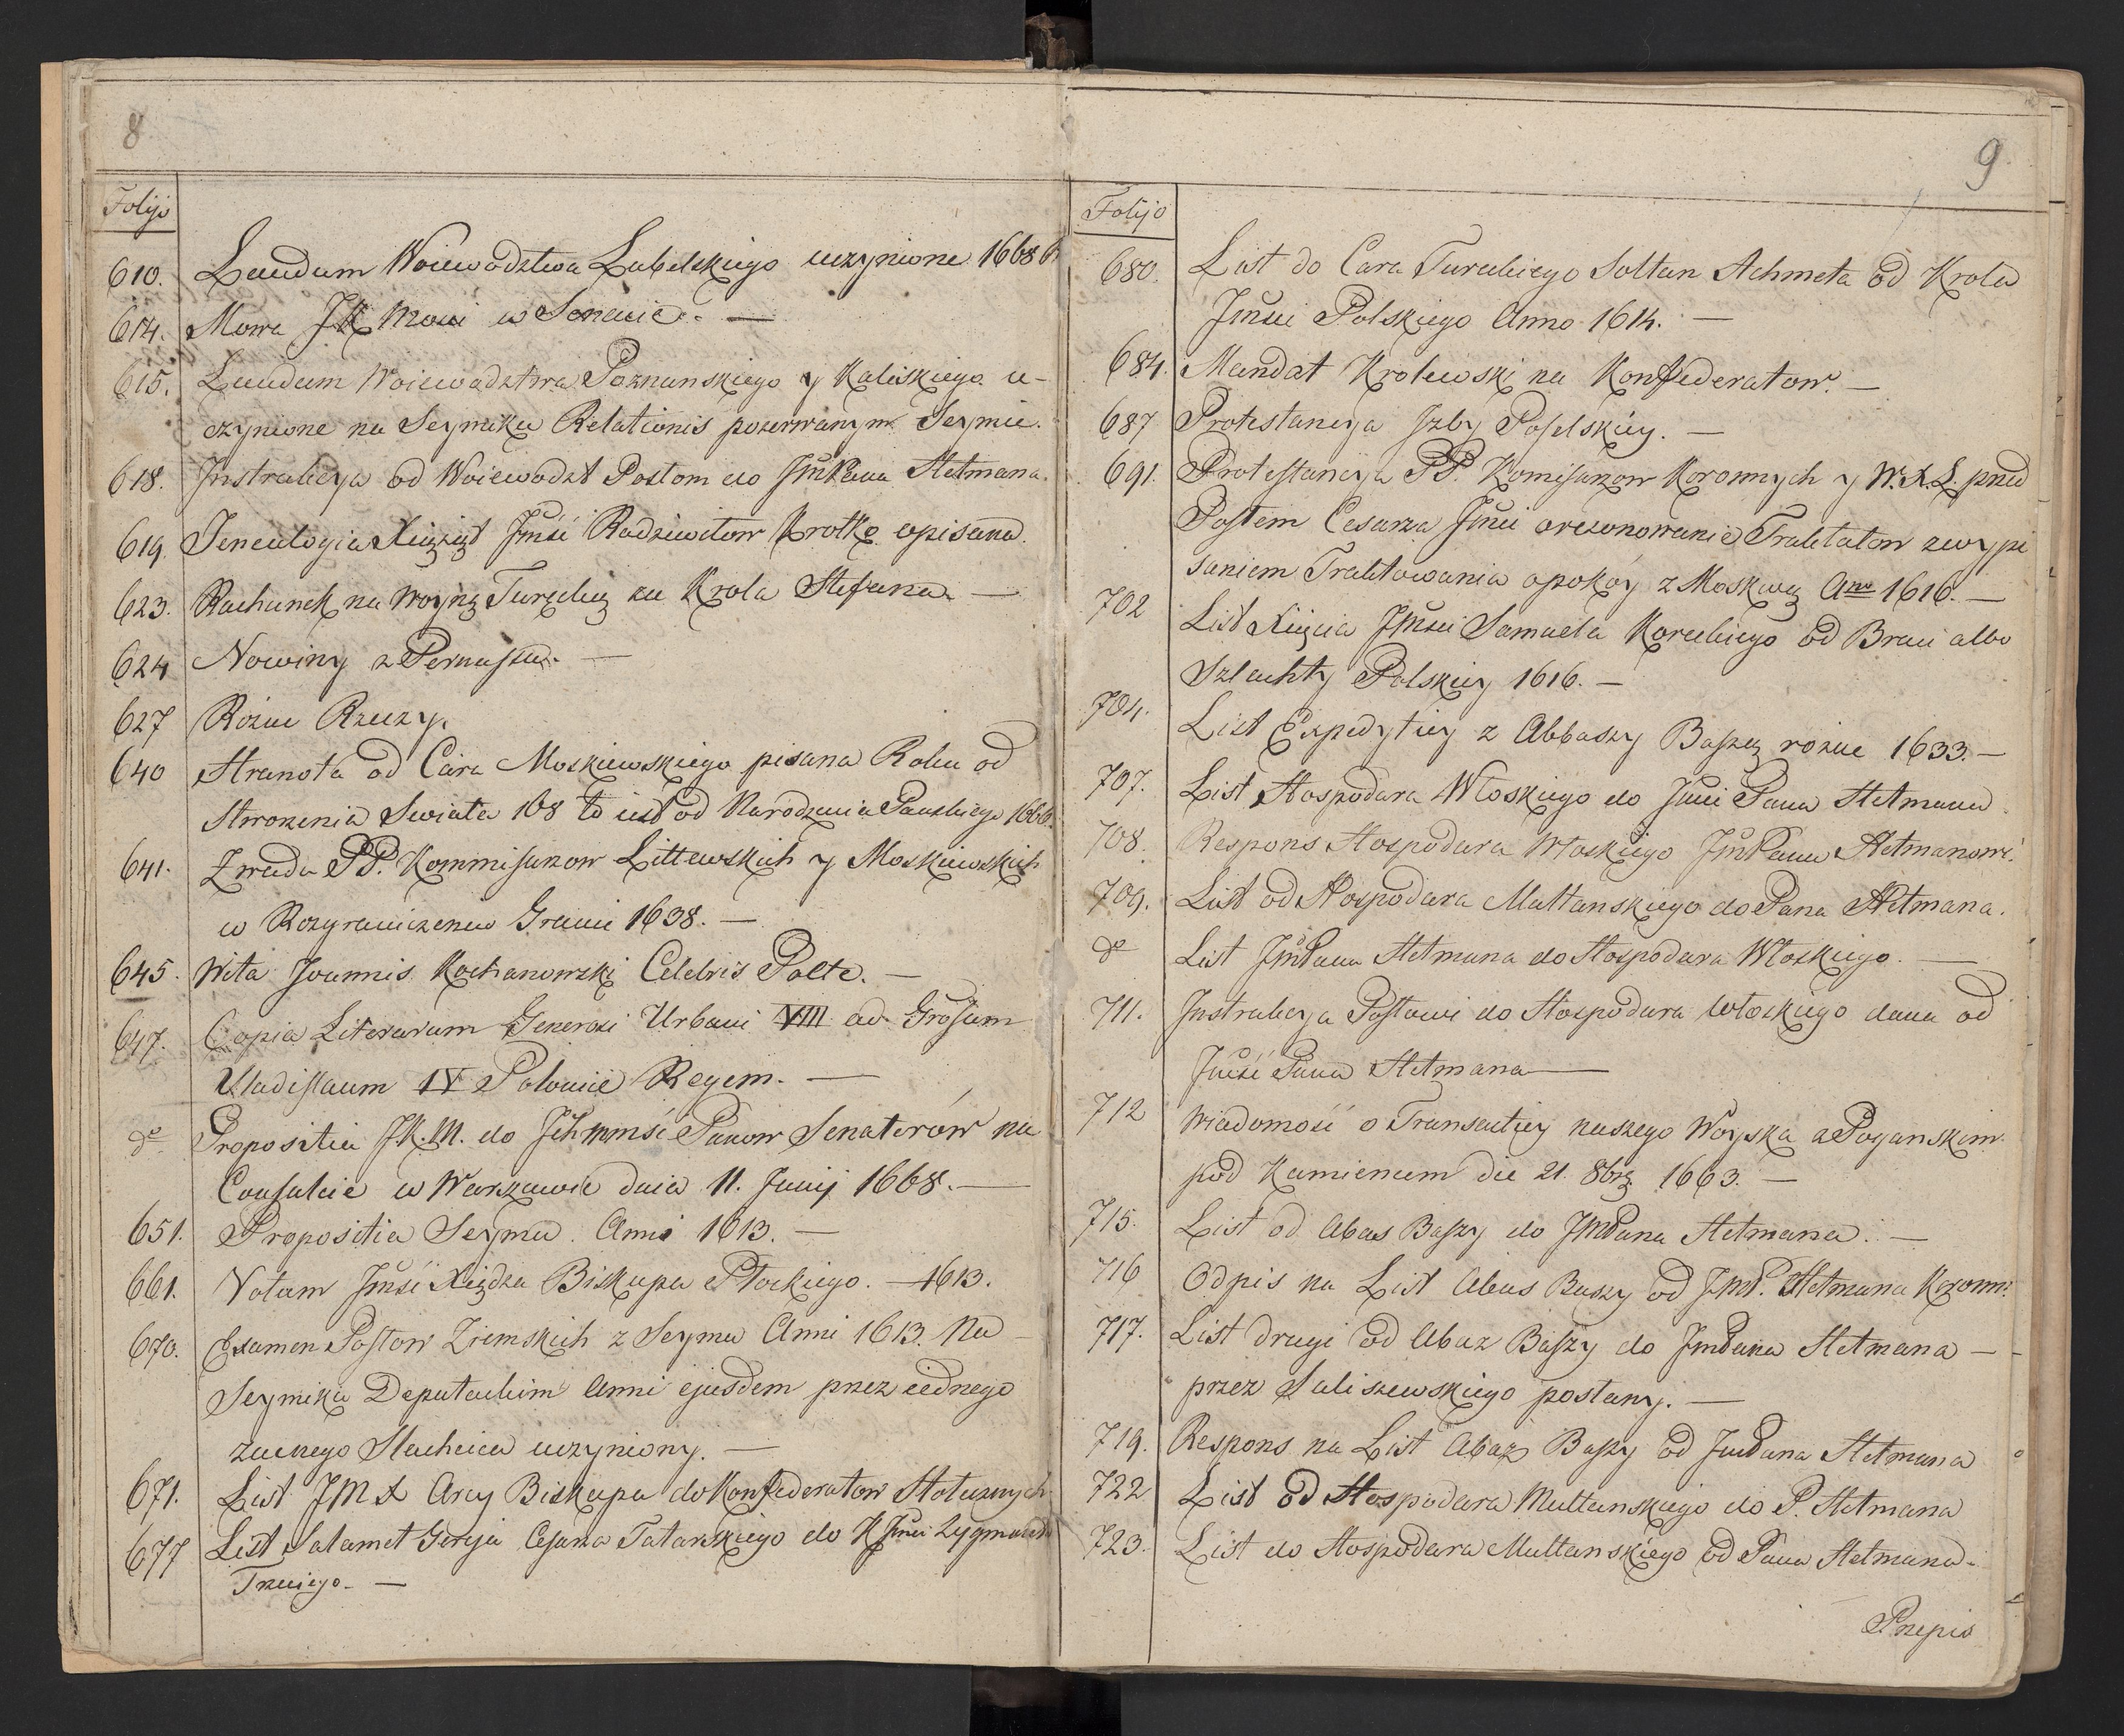 8
Folijo
610. Laudum Woiewodztwa Lubelskiego uczynione 1668
614. Mowa JK Mosci w Senacie. —
615. Laudum Woiewodztwa Poznanskiego y Kaliskiego u-
czynione na Seymiku Relationis pozerwanym Seymie.
618. Instrukcya od Woiewodzt Posłom do JmPana Hetmana.
619. Jenealogia Xiążąt Jmsci Radziwiłow krotko opisana.
623. Rachunek na woynę Turecką za Krola Stefana. —
624 Nowiny z Pernassu. —
627 Rożne Rzeczy.
640 Hramota od Cara Moskiewskiego pisana Roku od
Stworzenia Swiata 168 to iest od Narodzenia Panskiego 1666.
641. Zwada PP. Kommisarzow Littewskich y Moskiewskich
w Rozgraniczeniu Granic 1638. —
645. Wita Joannis Kochanowski Celebris Poëte. —
647. Copia Literarum Generosi Urbani VIII ad
Uladislaum IV Polonie Regem. —
do Propositia JK.M. do Panow Senatorów na
Consulcie w Warszawie dnia 11. Junij 1668. —
651. Propositia Seymu Anni 1613. —
661. Votum Jmsci Xiędza Biskupa Płockiego. — 1613.
670. Examen Posłow Ziemskich z Seymu Anni 1613. Na
Seymiku Deputackim Anni ejusdem przez iednego
zacnego Slachcica uczyniony. —
671. List JM X Arcy Biskupa do Konfederatow Stołecznych
677 List Salamet Gereja Cesarza Tatarskiego do K Jmci Zygmunta
Trzeciego. —
9
Folijo
680. List do Cara Tureckiego Sołtan Achmeta od Krola
Jmsci Polskiego Anno 1614. —
684. Mandat Krolewski na Konfederatow. —
687 Protestancya Jzby Poselskiey. —
691. Protestancya PP. Komisarzow Koronnych y W.X.L. pred
Posłem Cesarza Jmci Traktatow zwypi
saniem Traktowania opokoy z Moskwą Ano 1616. —
702 List Xięcia Jmsci Samuela Koreckiego od Braci albo
Szlachty Polskiey 1616. —
704. List Expedytiey z Abbaszy Baszą rożne 1633. —
707. List Hospodara Włoskiego do Jmci Pana Hetmana
708. Respons Hospodara Włoskiego JmPanu Hetmanowi.
709. List od Hospodara Multanskiego do Pana Hetmana.
do List JmPana Hetmana do Hospodara Włoskiego. —
711. Instrukcya Posłowi do Hospodara Włoskiego dana od
Jmści Pana Hetmana —
712 Wiadomość o Transactiey naszego Woyska z Poganskim
pod Kamiencem die 21. 8brs 1663. —
715. List od Abas Baszy do JMPana Hetmana. —
716 Odpis na List Abas Baszy od JmP. Hetmana Koronn:
717. List drugi od Abaz Baszy do JmPana Hetmana —
przez Saliszewskiego posłany. —
719. Respons na List Abaz Baszy od JmPana Hetmana
722 List od Hospodara Multanskiego do P. Hetmana
723. List do Hospodara Multanskiego od Pana Hetmana.
Przepis